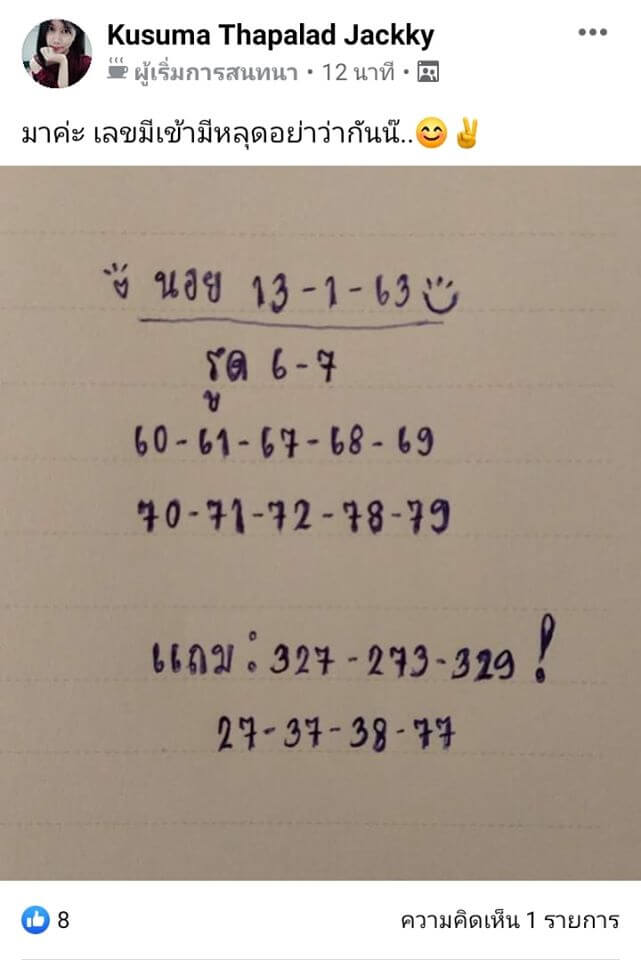 Kusuma Thapalad Jackky
ผู้เริ่มการสนทนา • 12 นาที •
มาค่ะ เลขมีเข้ามีหลุดอย่าว่ากันน๊..😊✌
นอย 13-1-63
รูด 6-7
60-61-67-68-69
70-71-72-78-79
แถม: 327-273-329!
27-37-38-77
8
ความคิดเห็น 1 รายการ